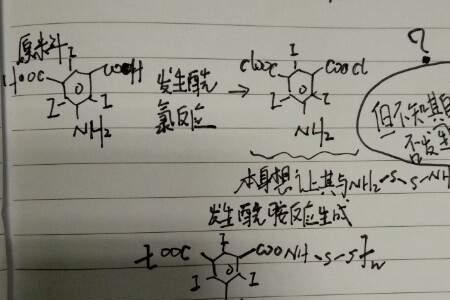 原来料
I
HOOC
COOH
I
I
NH2
发生酰
氯反应
I
clooC
COOCl
I
I
NH2
?
但不知其自
否发生
本身想让其与NH2-S-S-NH
发生酰胺反应生成
I
OOC
COONH-S-S
n
I
I